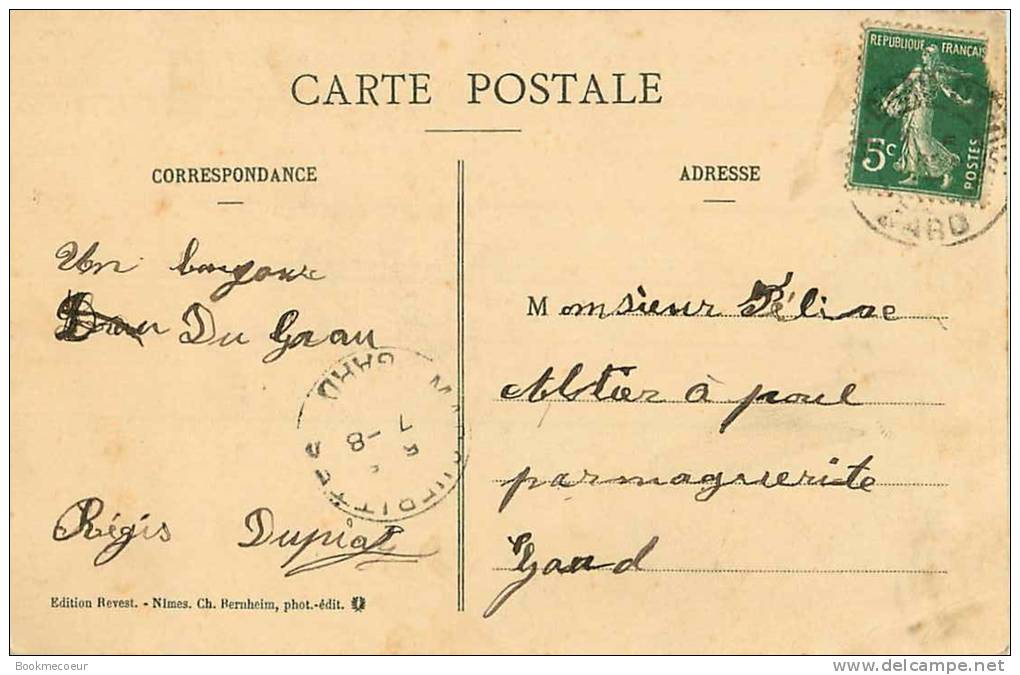 CARTE POSTALE
REPUBLIQUE FRANÇAI
5c
POSTES
GARD
CORRESPONDANCE
Un bonjour
Du Grau
GARD
MARGUERITTES
7 -8
Régis Dupiat
Edition Revest. - Nimes. Ch. Bernheim, phot.-édit.
ADRESSE
Monsieur Féli
à poul
par maguerite
Gard
Bookmecoeur
www.delcampe.net